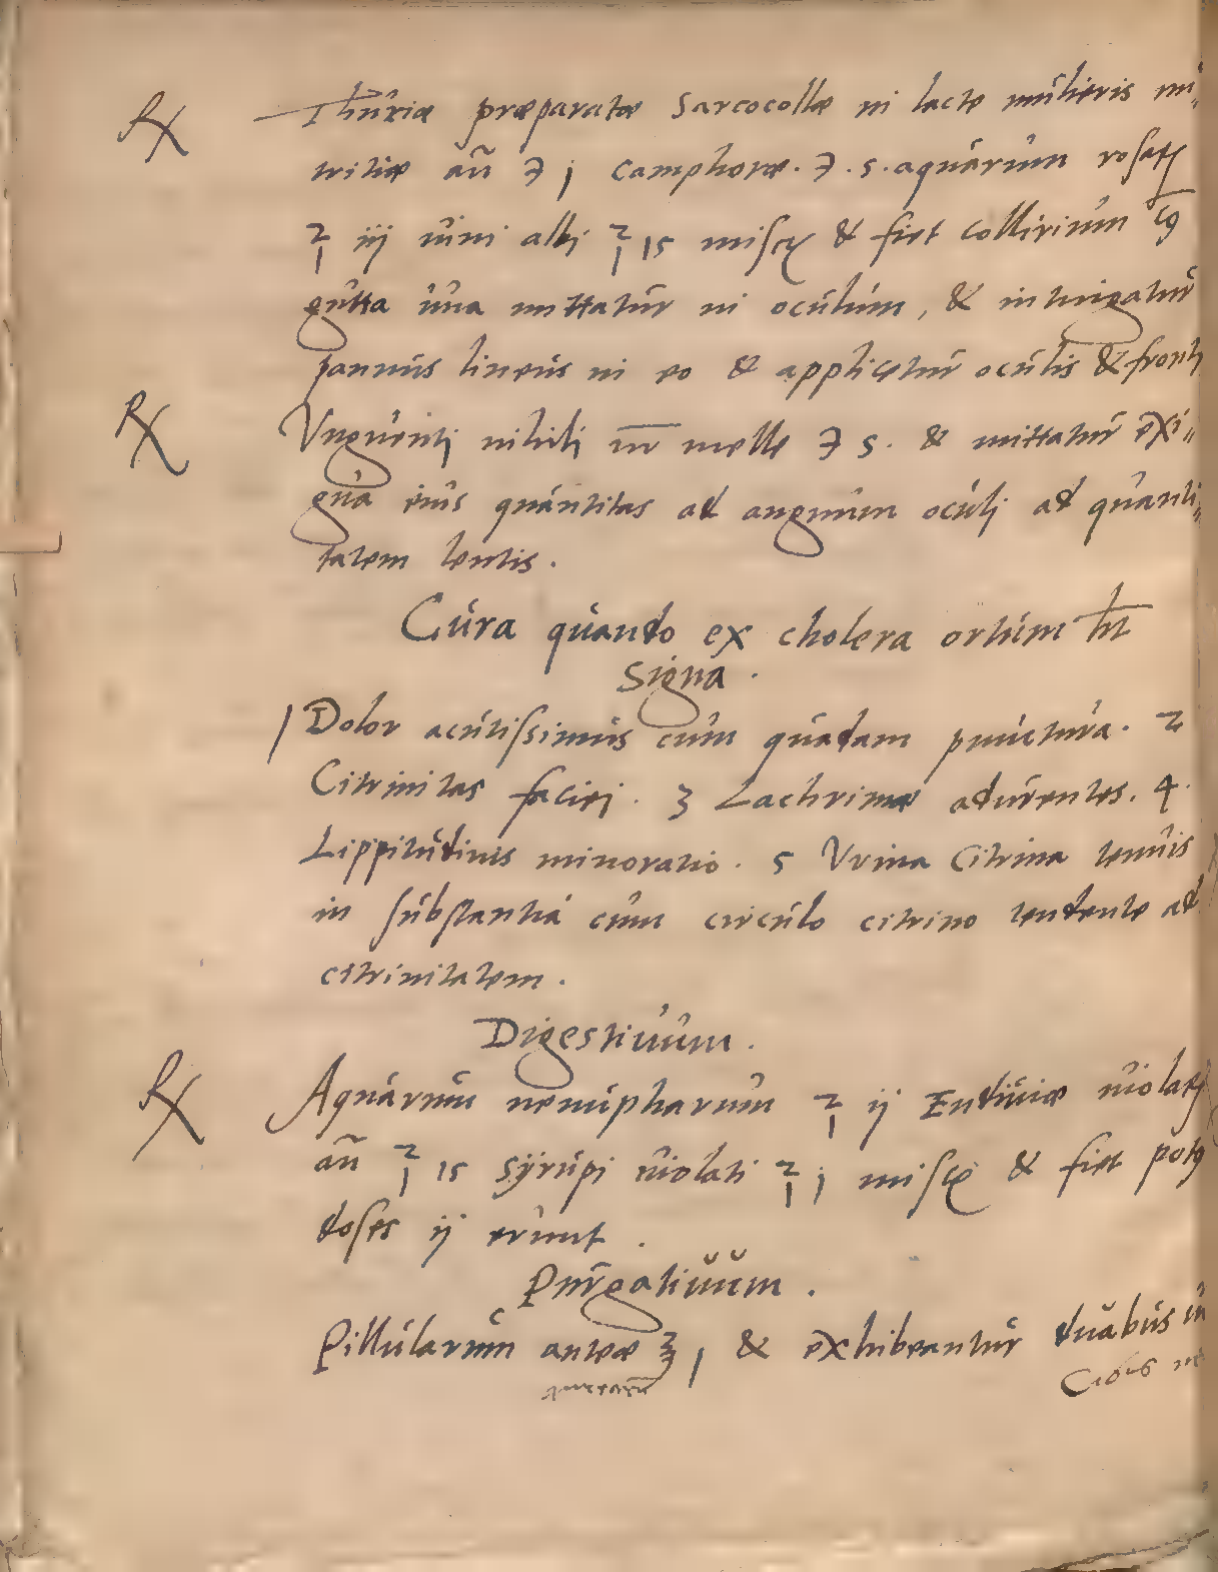 ℞ Thuriæ præparatæ Sarcocollæ in lacte mulieris nu„
tritiæ añ ℈ j camphoræ. ℈. s. aquarum rosaꝝ
℥ iij uini albi ℥ is misceꝫ & fiet collirium cꝰ
gutta una mittatur in oculum, & intingatur
pannus lineus in eo & applicetur oculis & fronti
℞ Vnguenti nihili melle ℈ s. & mittatur exi„
gua eius quantitas ad angulum oculi ad quanti„
tatem lentis.
Cura quando ex cholera ortum h̄t
Signa.
1 Dolor acutissimus cum quadam punctura. 2
Citrinitas faciei. 3 Lachrimæ adurentes. 4.
Lippitudinis minoratio. 5 Vrina Citrina tenuis
in substantia cum circulo citrino tendente ad
citrinitatem.
Digestiuum.
℞ Aquarum nenupharum ℥ ij Endiuiæ uiolaꝝ
añ ℥ is syrupi uiolati ℥ j misce & fiet potꝰ
doses ij erunt.
Purgatiuum.
Pillularum anteæ ʒ j & exhibeantur duabus